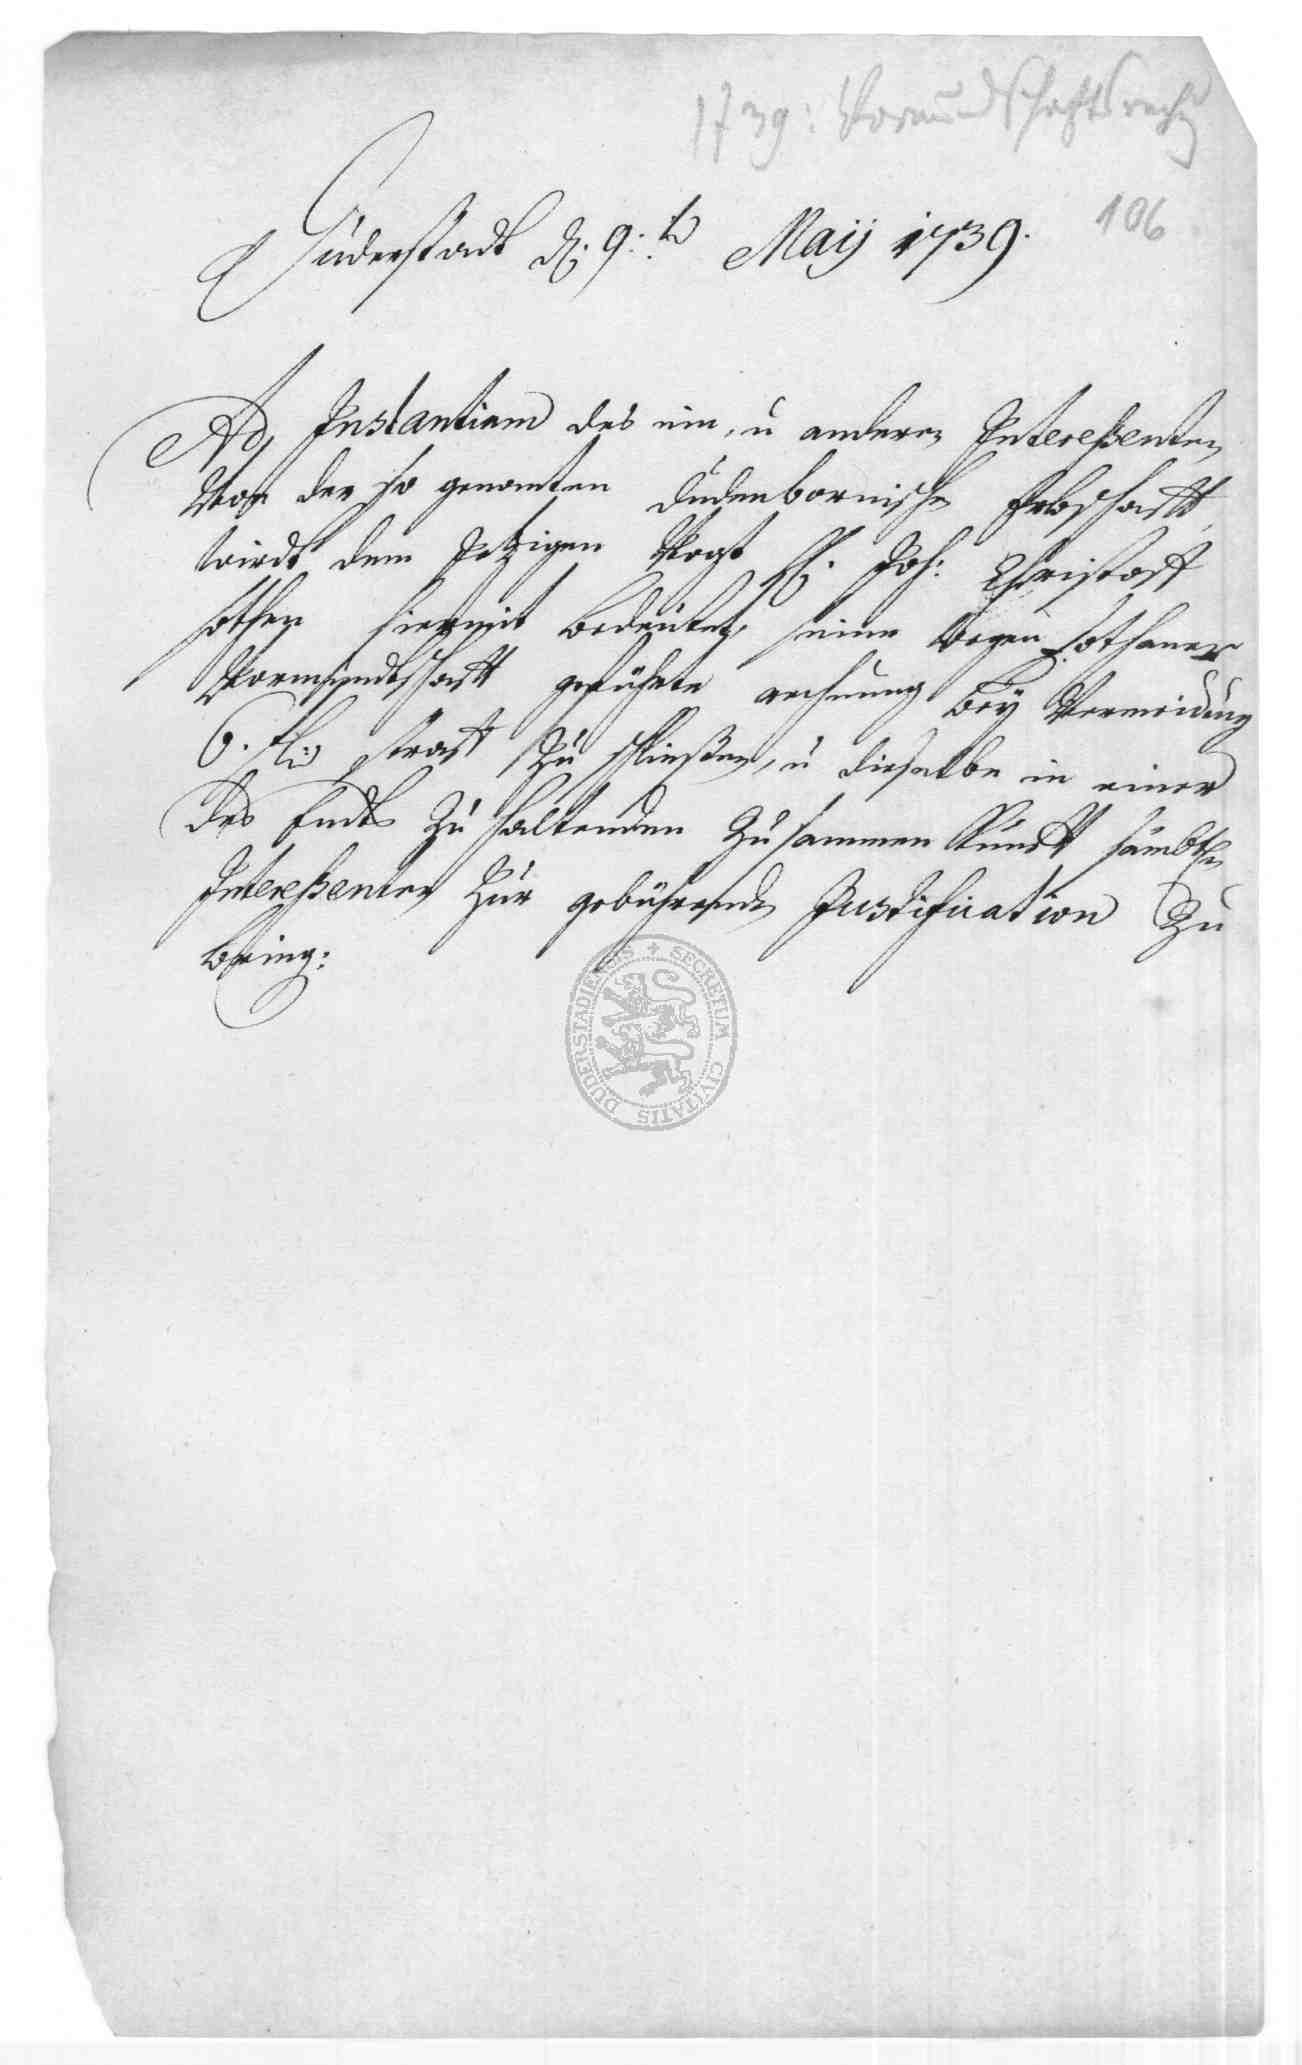 1739: Vormundschaftsrech
106
Duderstadt d. 9.t Maij 1739.
Ad Instantiam des ein, u anderen Interessenten
Von der so genanten Dudenbornischen Erbschafft
wirdt dem Jetzigen Vogt H. Joh: Christoff
hiermit bedeutet, seine wegen sothaner
Vormundtschafft geführte rechnung bey Vermeidung
6. fl. straff zu schließen, u dieselbe in einer
des Endts zu haltenden Zusammen Kunfft sämbtl.
Interessenten zur gebührende Justification zu
bring:
SECRETUM CIVITATIS DUDERSTADIENSIS